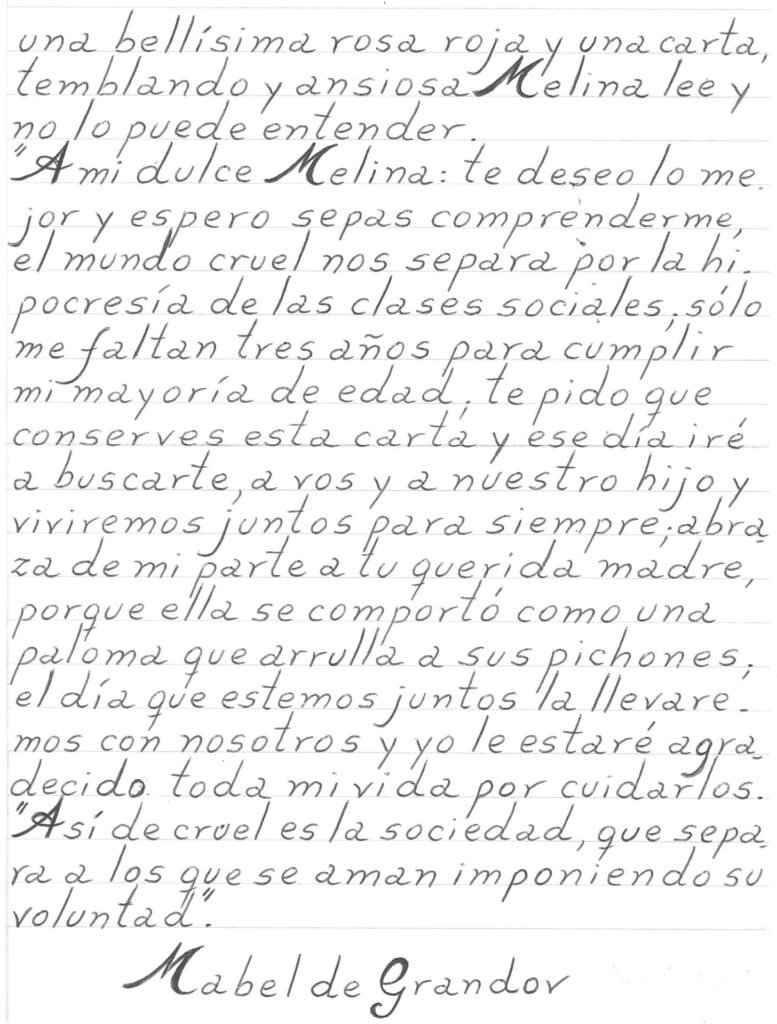 una bellísima rosa roja y una carta,
temblando y ansiosa Melina lee y
no lo puede entender.
"A mi dulce Melina: te deseo lo me-
jor y espero sepas comprenderme,
el mundo cruel nos separa por la hi-
pocresía de las clases sociales; sólo
me faltan tres años para cumplir
mi mayoría de edad; te pido que
conserves esta carta y ese día iré
a buscarte, a vos y a nuestro hijo y
viviremos juntos para siempre; abra-
za de mi parte a tu querida madre,
porque ella se comportó como una
paloma que arrulla a sus pichones;
el día que estemos juntos la llevare-
mos con nosotros y yo le estaré agra-
decido toda mi vida por cuidarlos.
"Así de cruel es la sociedad, que sepa-
ra a los que se aman imponiendo su
voluntad".
Mabel de Grandov